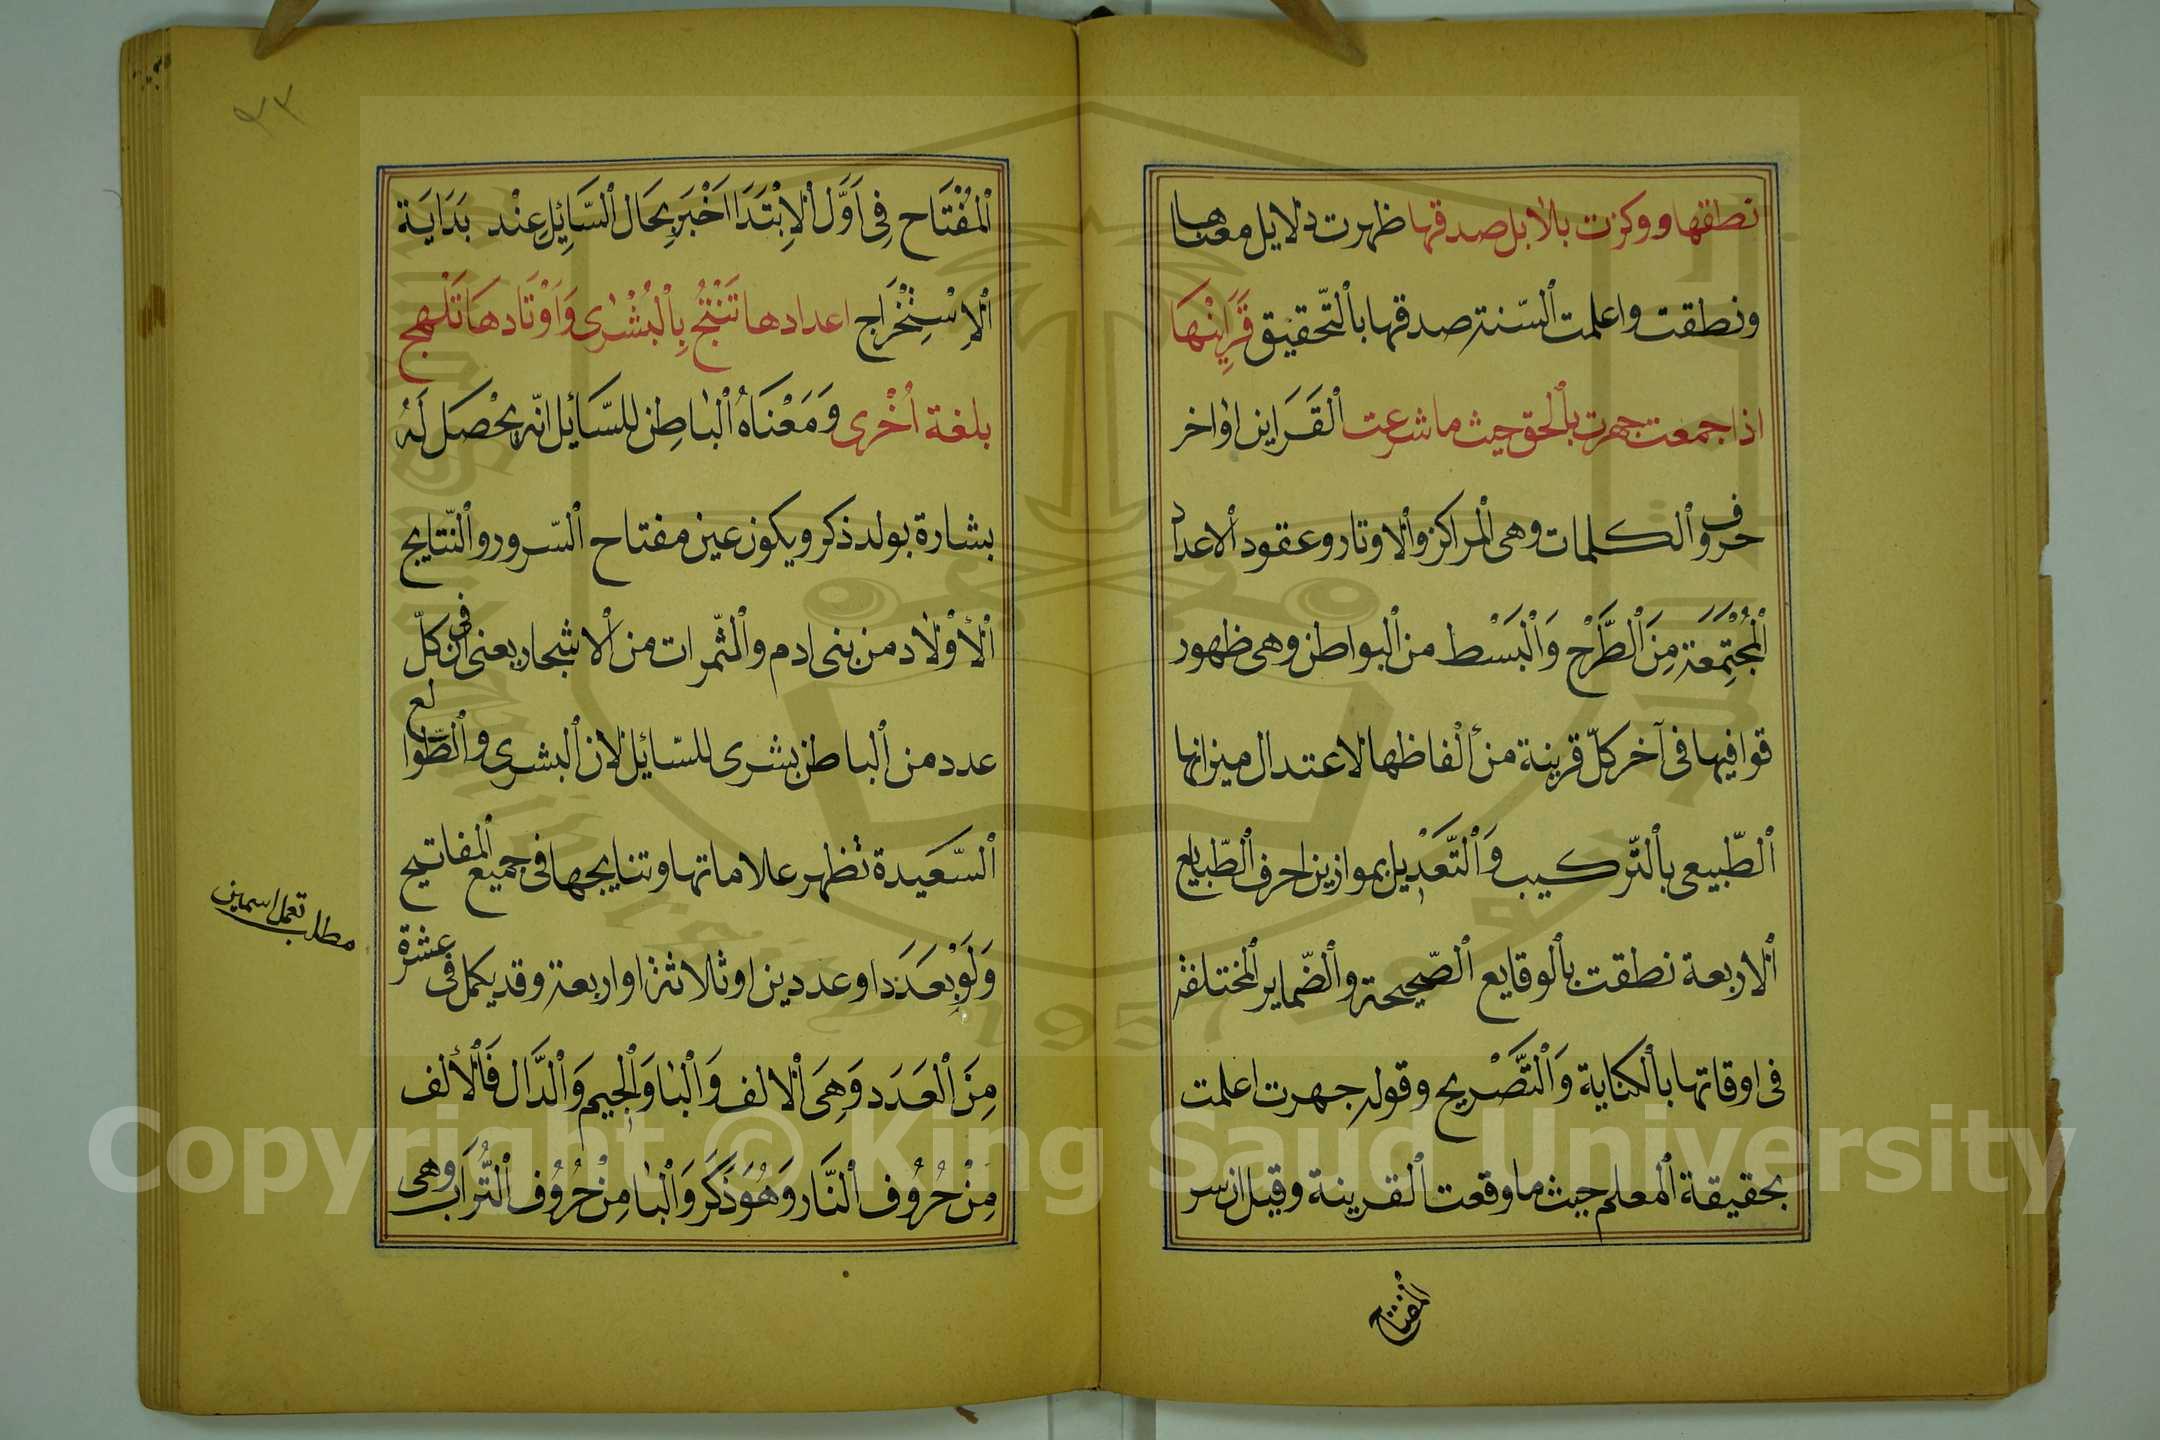 نطقها ووكزت بالابل صدقها ظهرت دلايل معناها
ونطقت واعلمت ٱلسّنتر صدقها بٱلتّحقيق قَرَايِنْهَا
اذا جمعت جهرت بٱلحق حيث ما شرعت ٱلقَرَاين اواخر
حرف وٱلكلمات وهى ٱلمراكز وٱلاوتار وعقود ٱلاعداد
ٱلمُجْتَمَعَة مِنَ ٱلطَّرْح وَٱلْبَسْط من ٱلبواطن وهى ظهور
قوافيها فى آخر كلّ قرينة من ألفاظها لاعتدال ميزانها
ٱلطّبيعى بٱلتّركيب وَٱلتَّعَدْيل بموازين احرف ٱلطّبايع
ٱلاربعة نطقت بٱلوقايع ٱلصّحيحة وٱلضّماير ٱلمختلفة
فى اوقاتها بٱلكناية وَٱلتَّصْريح وقوله جهرت اعلمت
بحقيقة ٱلمعلم حيث ما وقعت ٱلقرينة وقيل ان سر
ٱلمفتاح
ٱلمُفْتَاح فِى اَوَّل ٱلاِبْتَدَا اَخْبَر بِحَال ٱلسَّايِلِ عِنْد بَدَايَة
ٱلاِسْتِخْرَاج اعدادها تَنْتَجُ بِٱلْبُشْرٰى وَاَوْتَادهَا تَلْهج
بلغة اُخْرى وَمَعْنَاهُ ٱلبٰاطِن للسَّايل انّه يَحْصَل لَهُ
بشارة بولد ذكر ويكون عين مفتاح ٱلسّرور وٱلنّتايج
ٱلأوْلاد من بنى ادم وٱلثّمرات من ٱلاشجار يعنى ان فى كلّ
عدد من ٱلباطن بشرى للسّايل لان ٱلبشرى وٱلطّوالع
ٱلسّعَيدة تظهر علاماتها وتنايجها فى جميع ٱلمفاتيح
وَلَوْ بعَدَد او عددين او ثلاثة او اربعة وقد يكمل فى عشرة
مِنَ ٱلعَدَد وَهِىَ ٱلالف وَٱلبٰا وَٱلجيم وَٱلدَّال فَٱلألف
مِنْ حُرُوف ٱلنَّار وَهُوَ ذَكَر وَٱلبٰا مِنْ حُرُوف ٱلتُّرَاب وهى
مطلب تعمل اسمين
٩٣
Copyright © King Saud University
1957